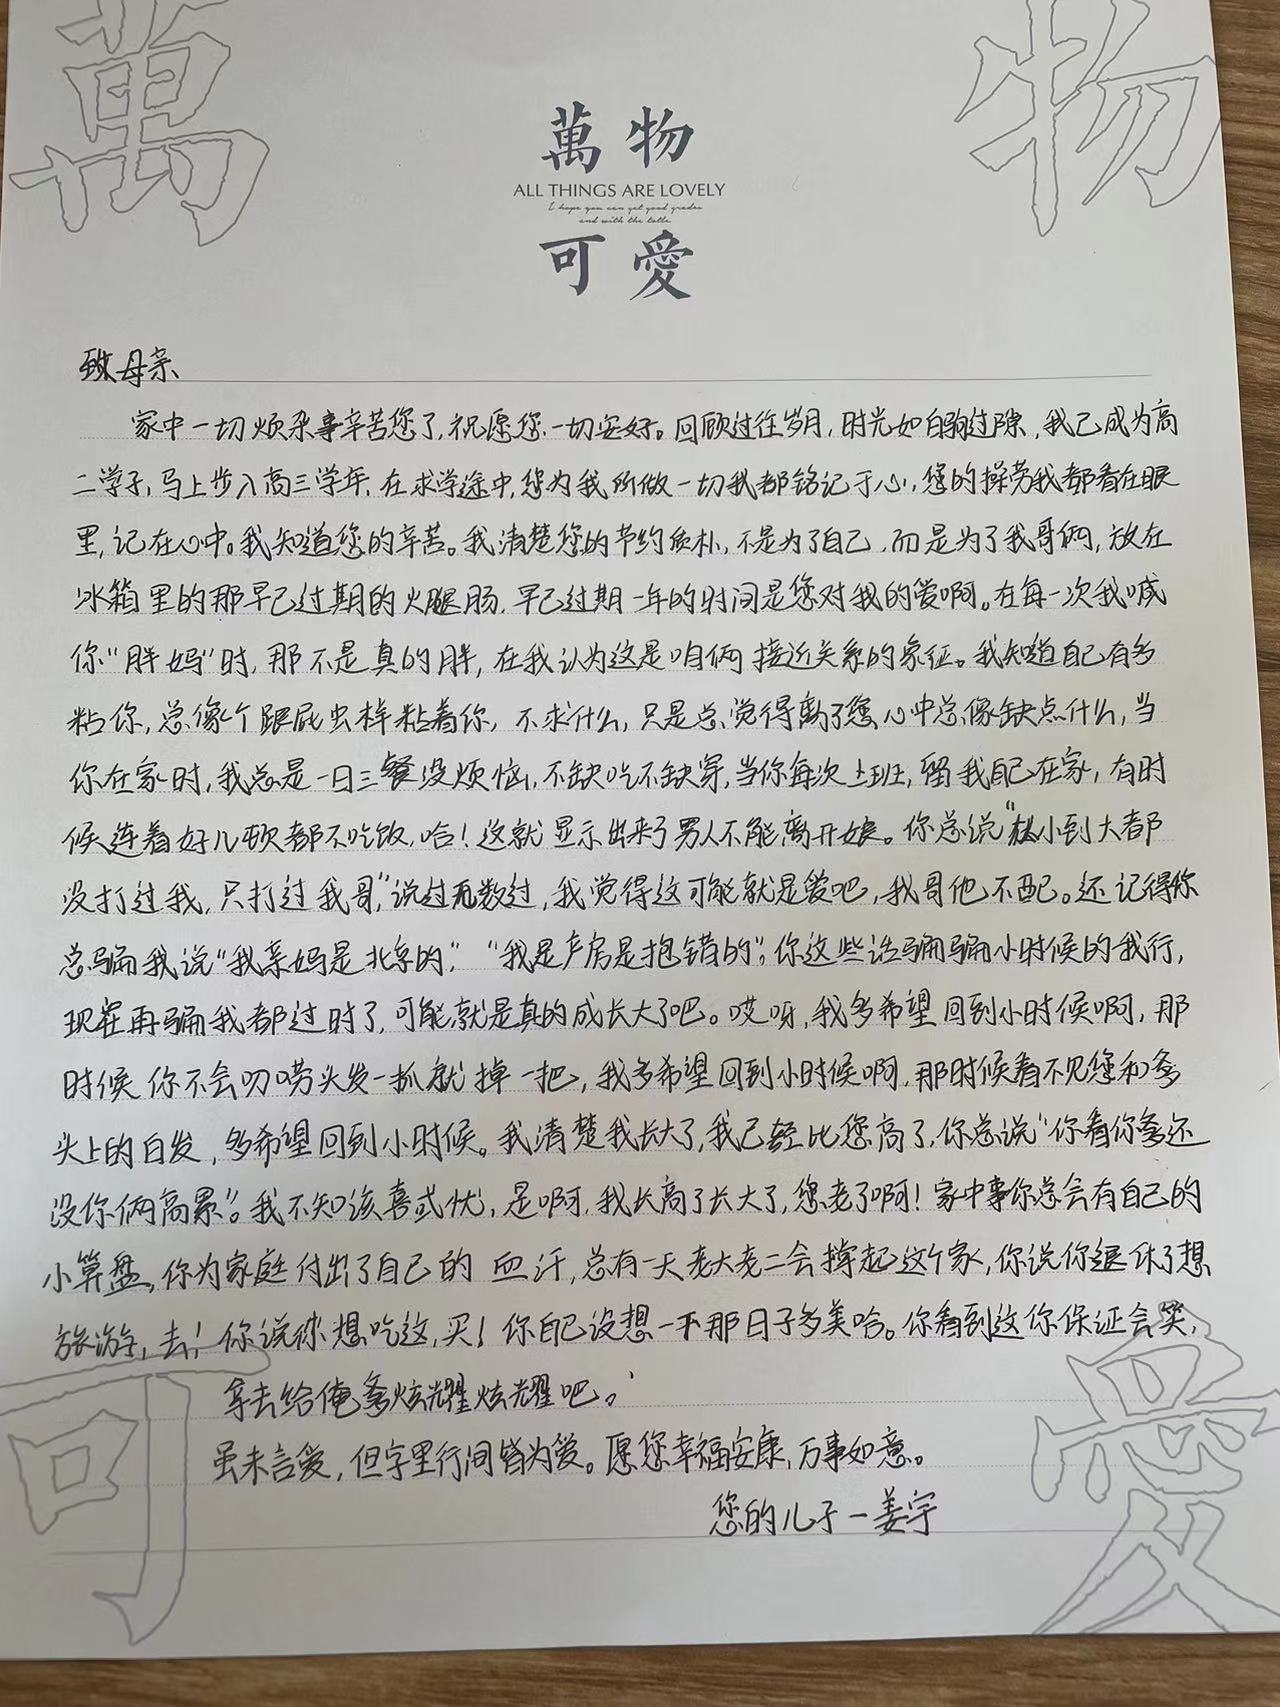 萬物
ALL THINGS ARE LOVELY
I hope you can get good grades
and with the
可愛
萬
物
致母亲
家中一切烦杂事辛苦您了,祝愿您一切安好。回顾过往岁月,时光如白驹过隙,我已成为高
二学子,马上步入高三学年,在求学途中,您为我所做一切我都铭记于心,您的操劳我都看在眼
里,记在心中。我知道您的辛苦。我清楚您的节约质朴,不是为了自己,而是为了我哥俩,放在
冰箱里的那早已过期的火腿肠,早已过期一年的时间是您对我的爱啊。在每一次我喊
你“胖妈”时,那不是真的胖,在我认为这是咱俩接近关系的象征。我知道自己有多
粘你,总像个跟屁虫样粘着你,不求什么,只是总觉得离了您心中总像缺点什么,当
你在家时,我总是一日三餐没烦恼,不缺吃不缺穿,当你每次上班,留我自己在家,有时
候连着好几顿都不吃饭,哈!这就显示出来了男人不能离开娘。你总说“从小到大都
没打过我,只打过我哥,”说过无数过,我觉得这可能就是爱吧,我哥他不配。还记得你
总骗我说“我亲妈是北京的”,“我是产房是抱错的”,你这些话骗骗小时候的我行,
现在再骗我都过时了,可能就是真的成长大了吧。哎呀,我多希望回到小时候啊,那
时候你不会叨唠头发一抓就掉一把,我多希望回到小时候啊,那时候看不见您和爹
头上的白发,多希望回到小时候。我清楚我长大了,我已经比您高了,你总说“你看你爹还
没你俩高累”。我不知该喜或忧,是啊,我长高了长大了,您老了啊!家中事你总会有自己的
小算盘,你为家庭付出了自己的血汗,总有一天老大老二会撑起这个家,你说你退休了想
旅游,去!你说你想吃这,买!你自己设想一下那日子多美哈。你看到这你保证会笑,
拿去给俺爹炫耀炫耀吧。
虽未言爱,但字里行间皆为爱。愿您幸福安康,万事如意。
您的儿子—姜宇
可
愛